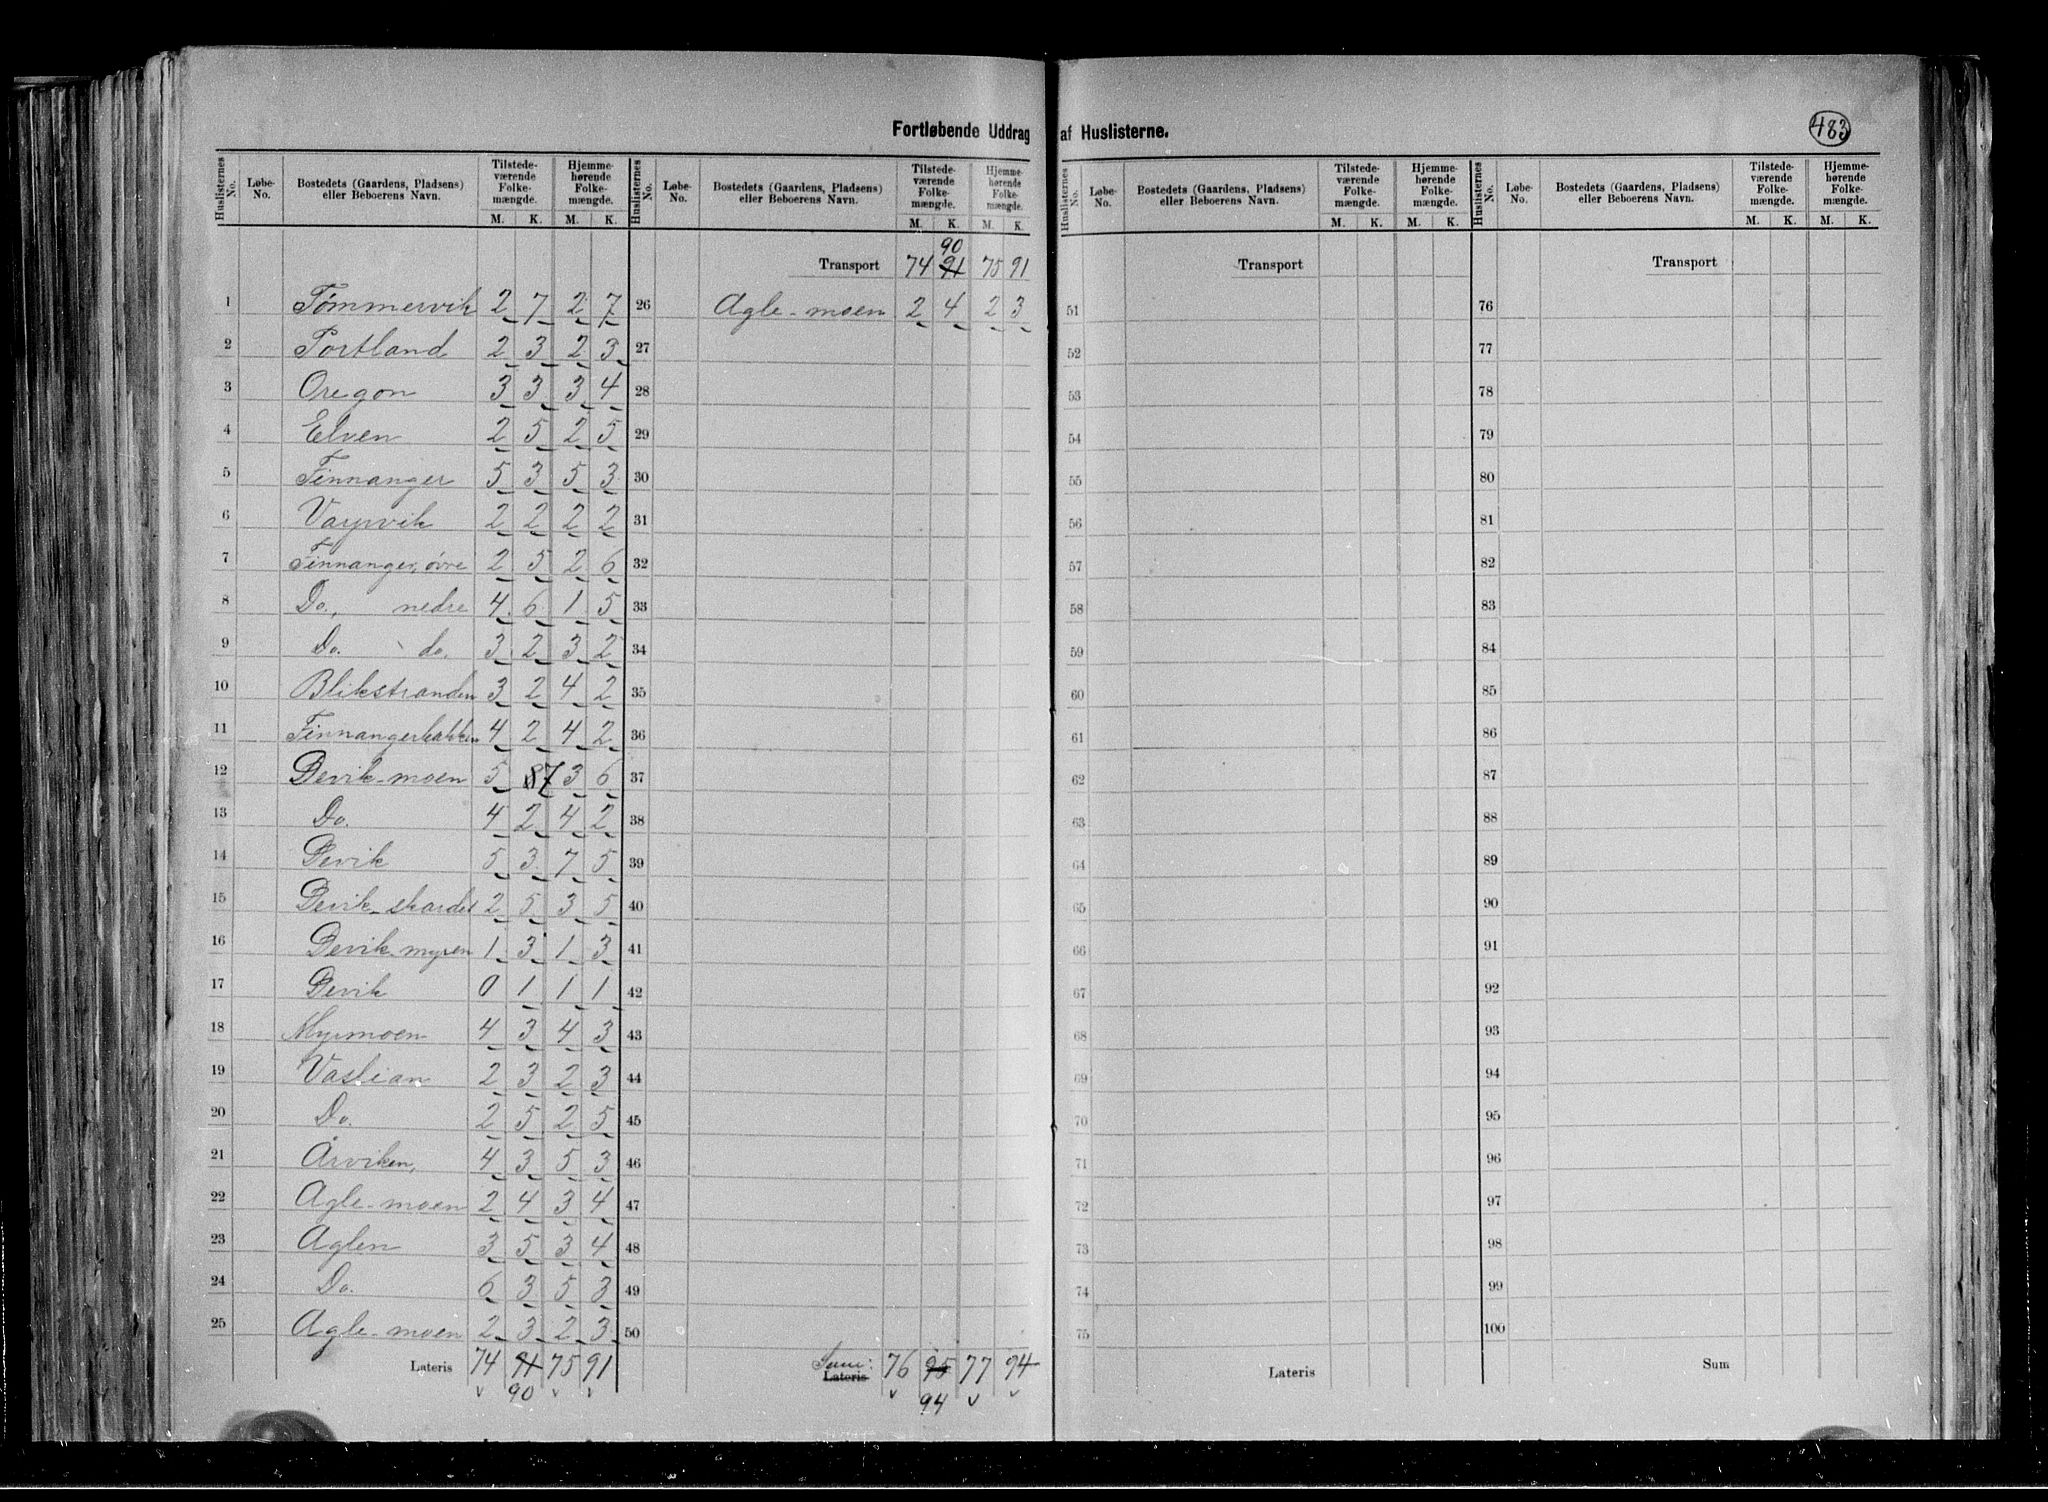 Fortløbende Uddrag af Huslisterne.
483
Huslisternes No. | Løbe-No. | Bostedets (Gaardens, Pladsen) eller Beboerens Navn. | Tilstedeværende Folkemængde. M. K. | Hjemmehørende Folkemængde. M. K.
1 Tømmervik 2 7 2 7
2 Portland 2 3 2 3
3 Oregon 3 3 3 4
4 Elven 2 5 2 5
5 Finnanger 5 3 5 3
6 2 2 2 2
7 Finnanger, øvre 2 5 2 6
8 Do, nedre 4 6 1 5
9 Do. do. 3 2 3 2
10 Blikstranden 3 2 4 2
11 Finnangerbakken 4 2 4 2
12 Devik-moen 5 8 7 3 6
13 Do. 4 2 4 2
14 Devik 5 3 7 5
15 Devik-skardet 2 5 3 5
16 Devik-myren 1 3 1 3
17 Devik 0 1 1 1
18 Myrmoen 4 3 4 3
19 2 3 2 3
20 Do. 2 5 2 5
21 Årviken, 4 3 5 3
22 Agle-moen 2 4 3 4
23 Aglen 3 5 3 4
24 Do. 6 3 5 3
25 Agle-moen 2 3 2 3
Lateris 74 91 75 91
90
Huslisternes No. | Løbe-No. | Bostedets (Gaardens, Pladsen) eller Beboerens Navn. | Tilstedeværende Folkemængde. M. K. | Hjemmehørende Folkemængde. M. K.
90
Transport 74 91 75 91
26 Agle-moen 2 4 2 3
27
28
29
30
31
32
33
34
35
36
37
38
39
40
41
42
43
44
45
46
47
48
49
50
Sum:
Lateris 76 95 77 94
94
Huslisternes No. | Løbe-No. | Bostedets (Gaardens, Pladsen) eller Beboerens Navn. | Tilstedeværende Folkemængde. M. K. | Hjemmehørende Folkemængde. M. K.
Transport
51
52
53
54
55
56
57
58
59
60
61
62
63
64
65
66
67
68
69
70
71
72
73
74
75
Lateris
Huslisternes No. | Løbe-No. | Bostedets (Gaardens, Pladsen) eller Beboerens Navn. | Tilstedeværende Folkemængde. M. K. | Hjemmehørende Folkemængde. M. K.
Transport
76
77
78
79
80
81
82
83
84
85
86
87
88
89
90
91
92
93
94
95
96
97
98
99
100
Sum